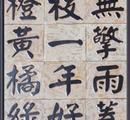 無擎雨蓋
枝一年好
橙黃橘綠